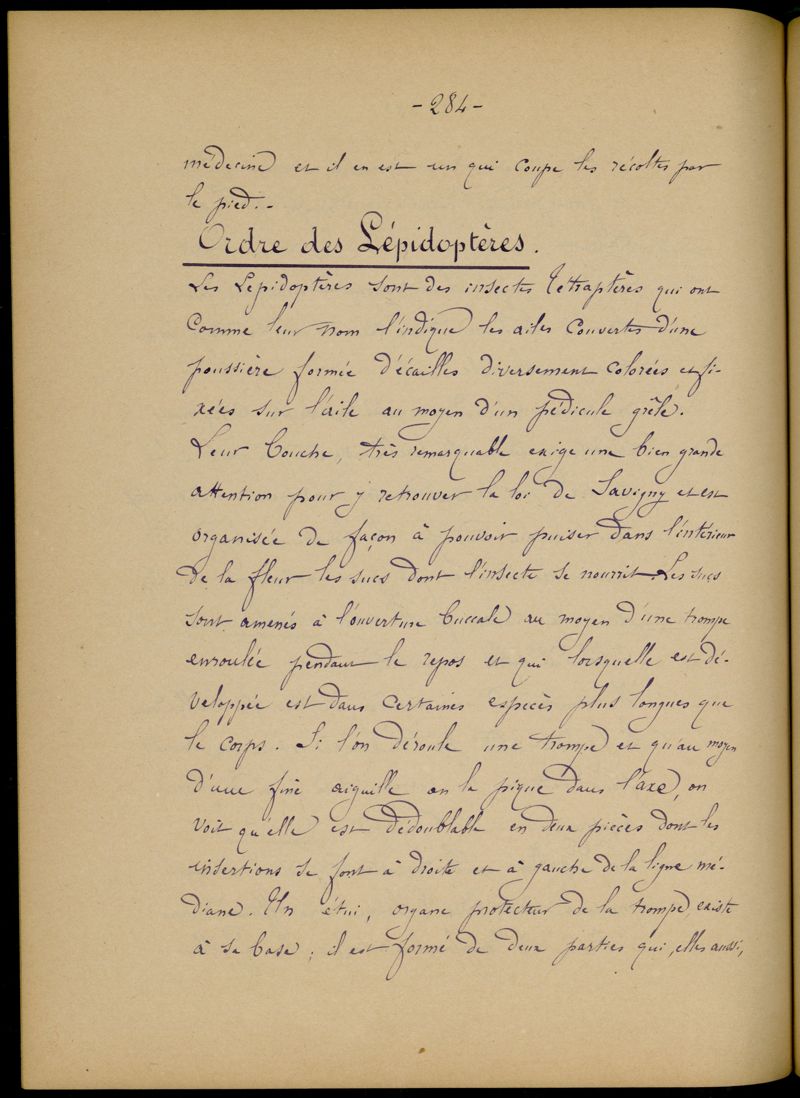 - 284 -
médecine et il en est un qui coupe les récoltes par
le pied. -
Ordre des Lépidoptères.
Les Lépidoptères sont des insectes Tétraptères qui ont
comme leur nom l'indique les ailes couvertes d'une
poussière formée d'écailles diversement colorées et fi-
xées sur l'aile au moyen d'un pédicule grêle.
Leur bouche, très remarquable exige une bien grande
attention pour y retrouver la loi de Savigny et est
organisée de façon à pouvoir puiser dans l'intérieur
de la fleur les sucs dont l'insecte se nourrit. Les sucs
sont amenés à l'ouverture buccale au moyen d'une trompe
enroulée pendant le repos et qui lorsquelle est dé-
veloppée est dans certaines espèces plus longues que
le corps. Si l'on déroule une trompe et qu'au moyen
d'une fine aiguille on la pique dans l'axe, on
voit qu'elle est dédoublable en deux pièces dont les
insertions se font à droite et à gauche de la ligne mé-
diane. Un étui, organe protecteur de la trompe, existe
à sa base ; il est formé de deux parties qui, elles aussi,